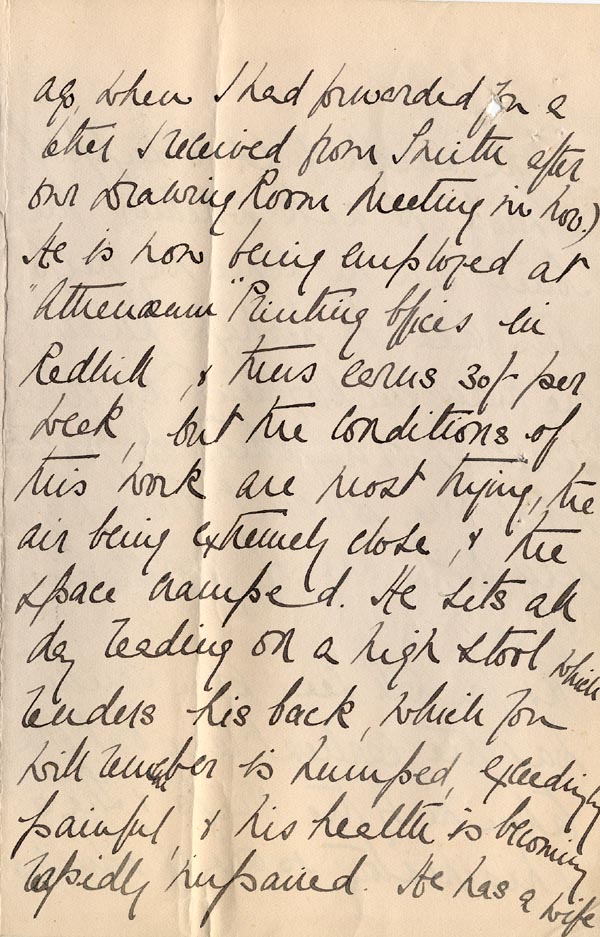 ago, when I had forwarded you a
letter I received from Smith after
our Drawing Room Meeting in Nov.)
He is now being employed at
"Athenaeum" Printing Offices in
Redhill, & thus earns 30/- per
week, but the conditions of
this work are most trying, the
air being extremely close, & the
space cramped. He sits all
day reading on a high stool which
renders his back, which you
will remember is humped, exceedingly
painful, & his health is becoming
rapidly impaired. He has a wife